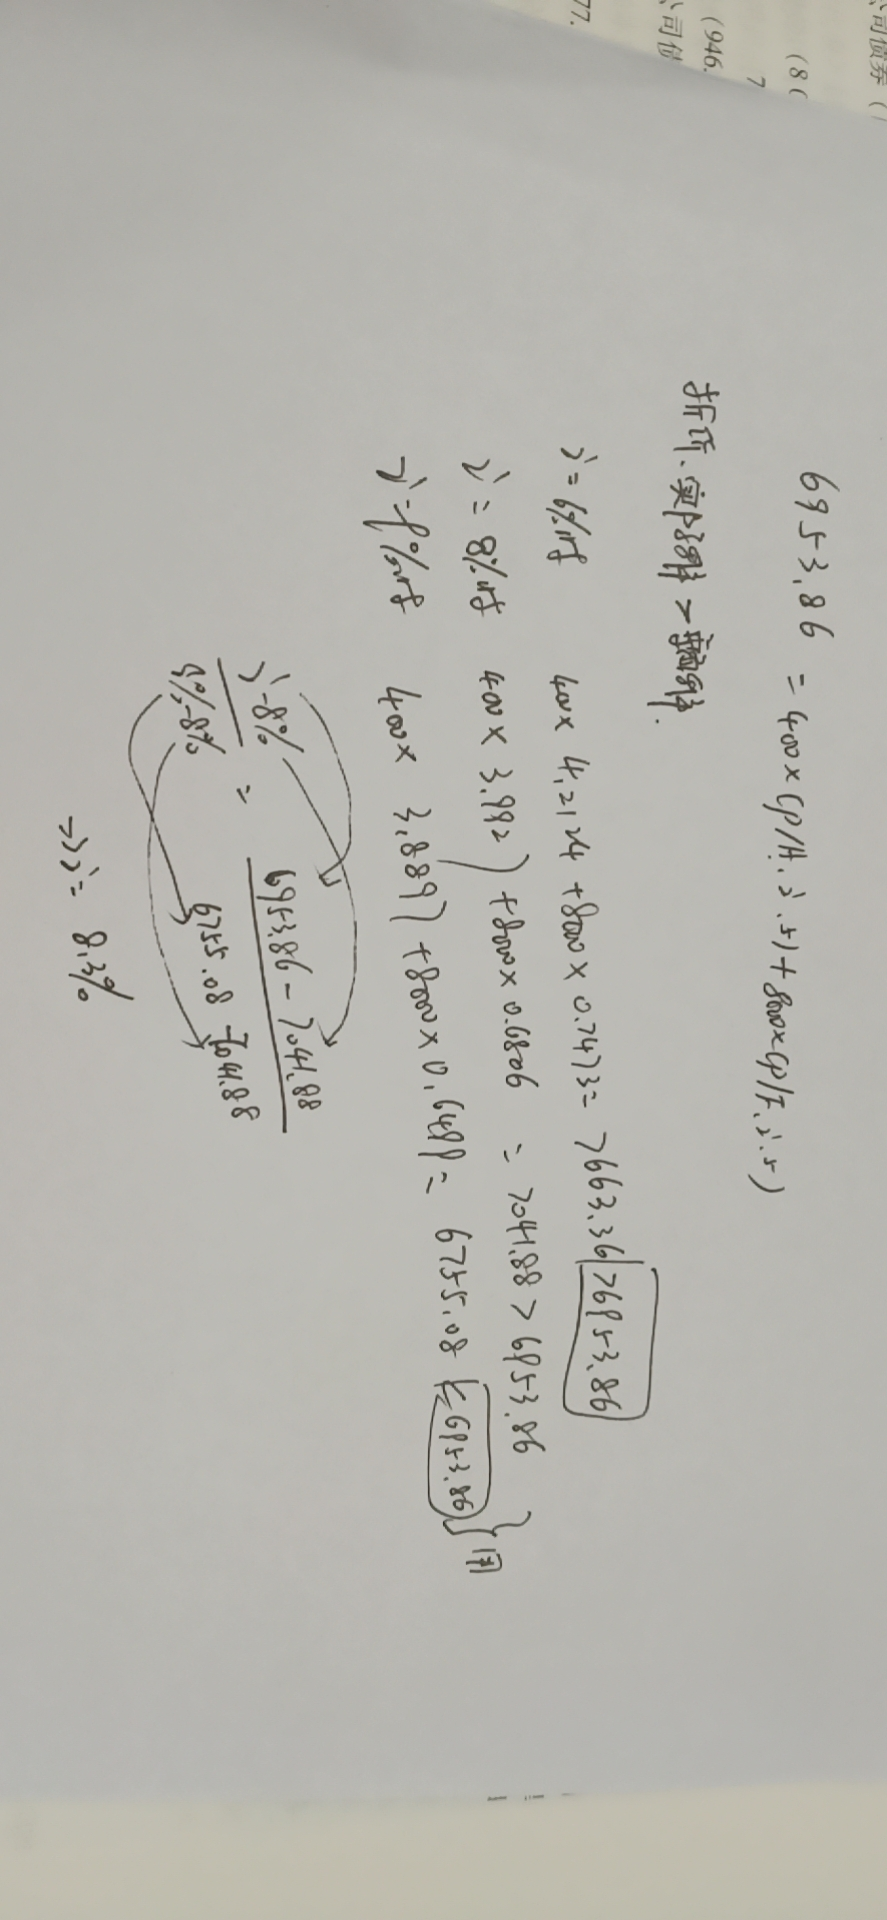 公司债券 (1
(8 (
7
(946.
公司债
77.
6953.86 = 400×(P/A.i.5)+8000×(P/F.i.5)
折价、实际利率 > 票面利率.
i=6%时 400×4.2124+8000×0.7473=7663.36>6953.86
i=8%时 400×3.9927+8000×0.6806=7041.88>6953.86
i=9%时 400×3.8897+8000×0.6499=6755.08<6953.86 } 用
i-8% = 6953.86-7041.88
9%-8% 6755.08-7041.88
=>i=8.3%